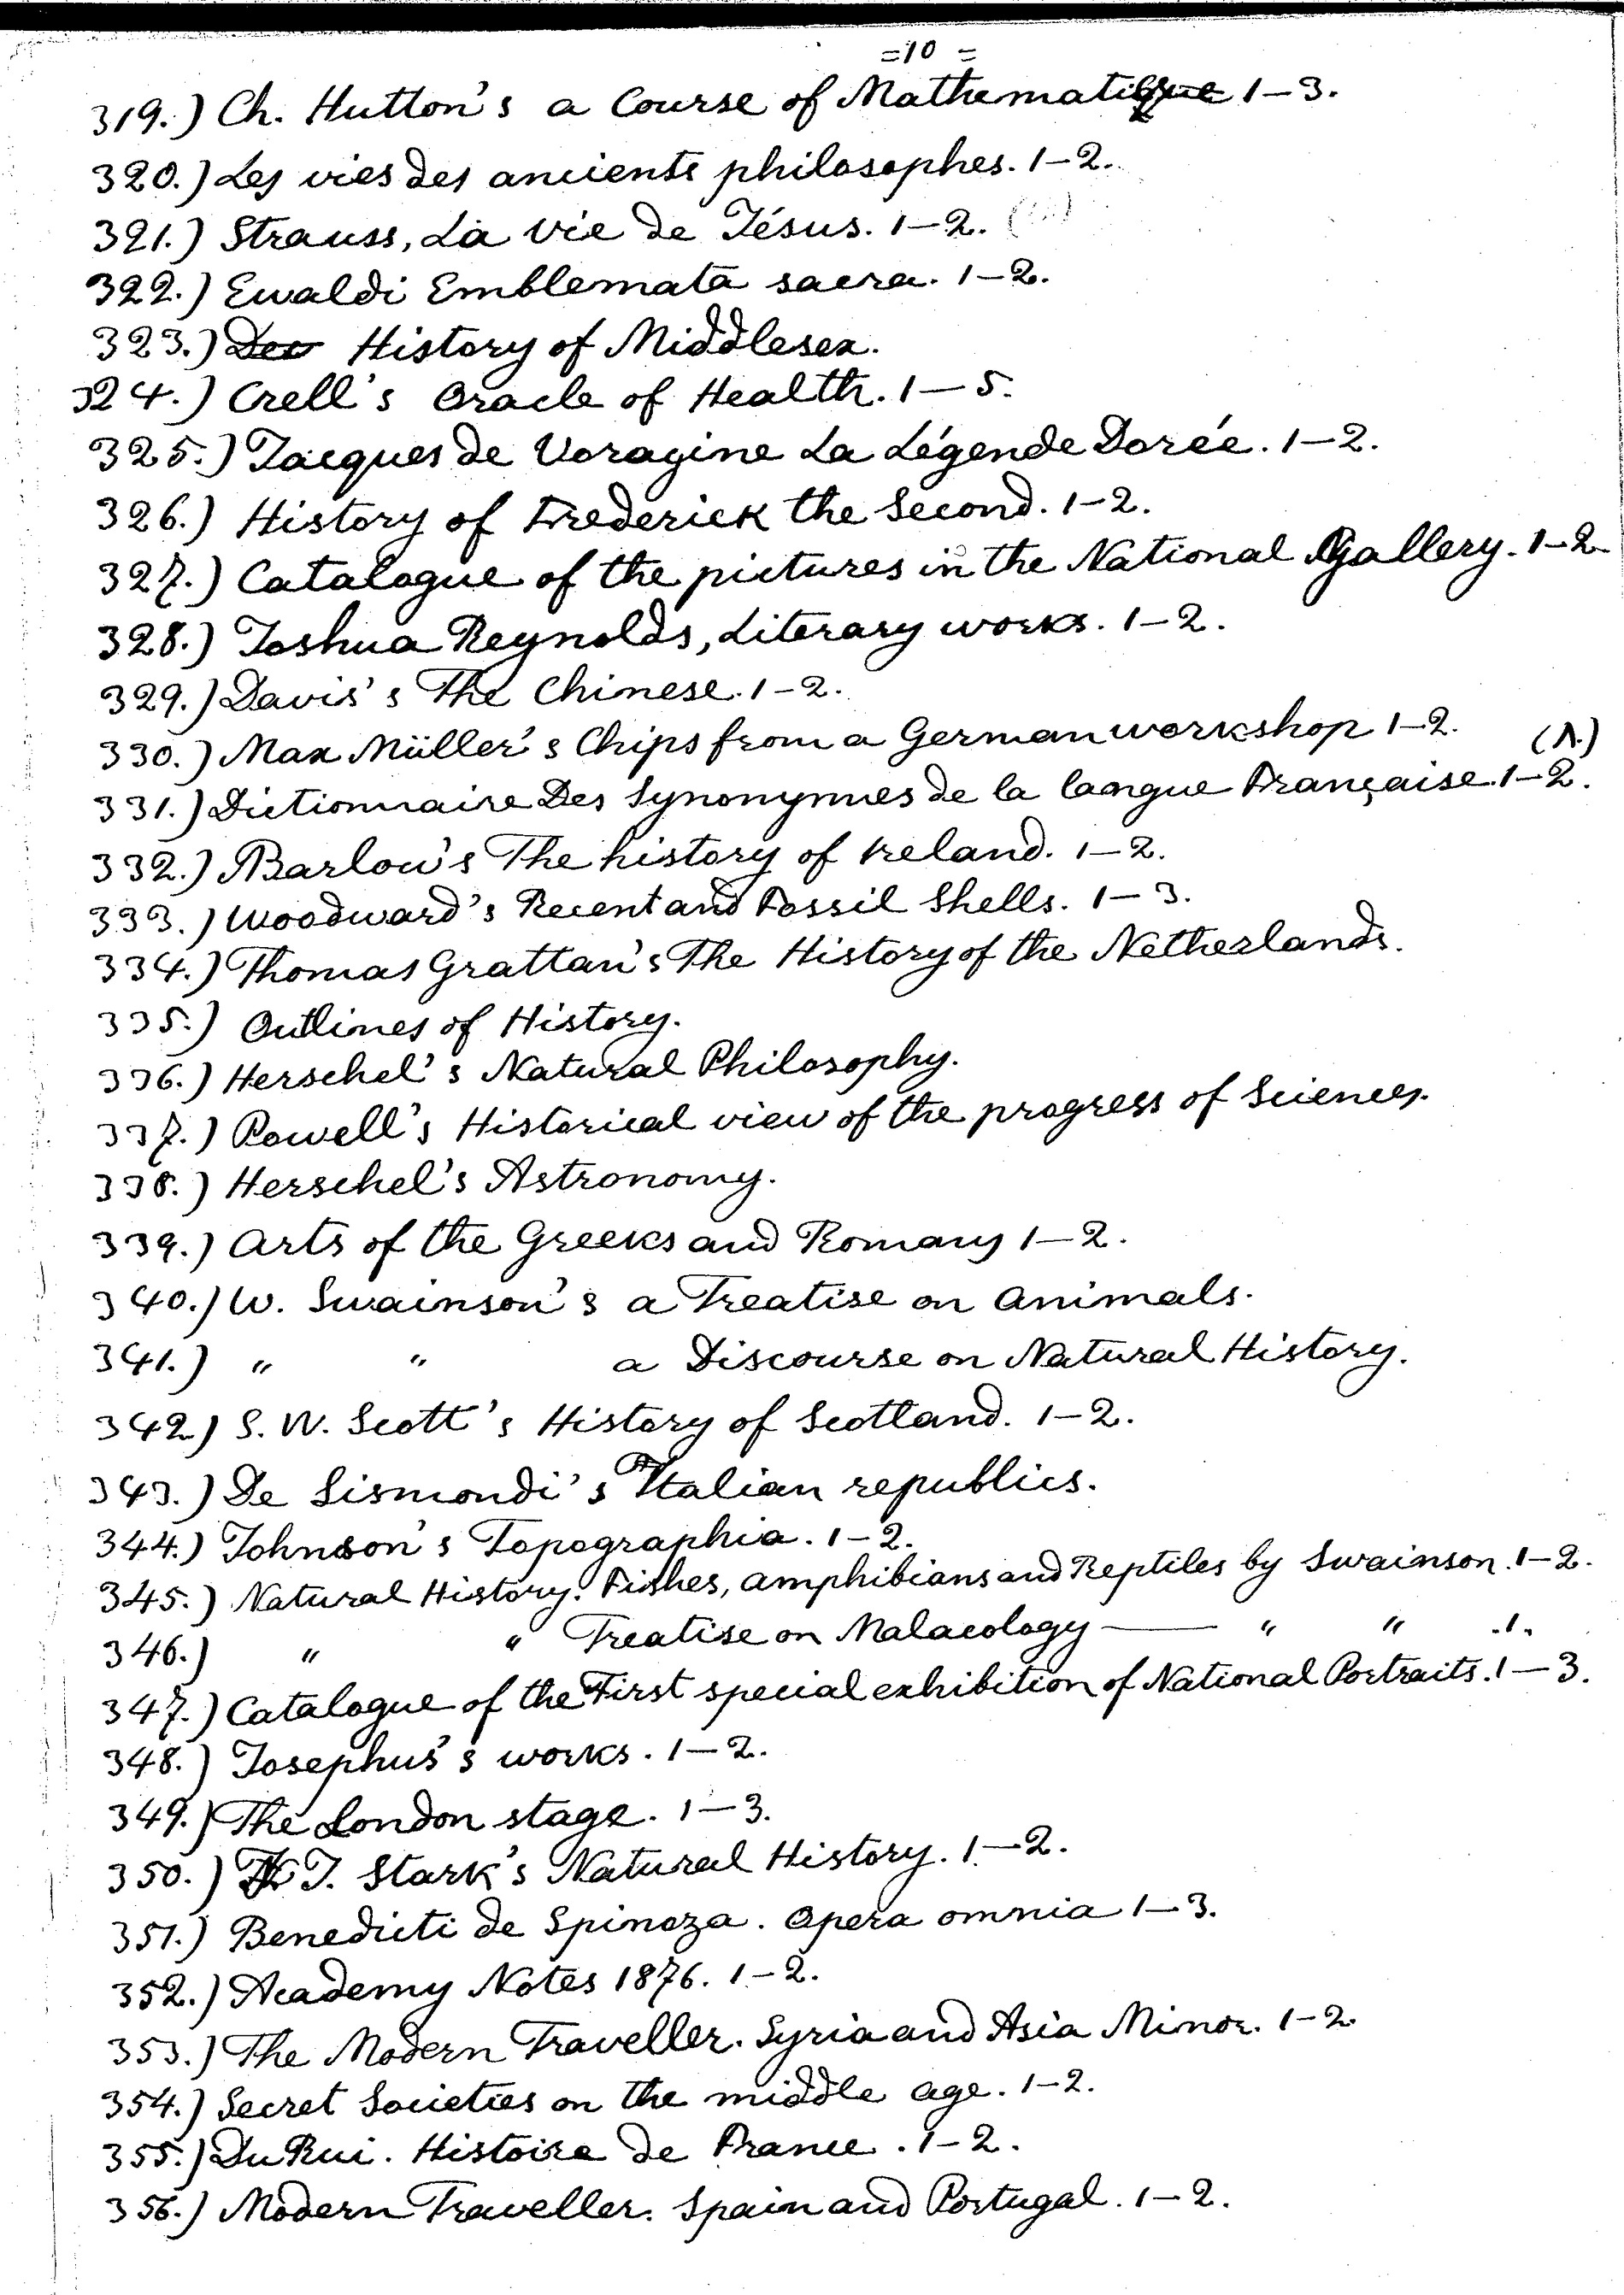 =10=
319.) Ch. Hutton's a Course of Mathematics 1-3.
320.) Les vies des ancients philosophes. 1-2.
321.) Strauss, La vie de Jésus. 1-2.
322.) Ewaldi Emblemata sacra. 1-2.
323.) History of Middlesex.
324.) Crell's Oracle of Health. 1-5.
325.) Jacques de Voragine La Légende Dorée. 1-2.
326.) History of Frederick the Second. 1-2.
327.) Catalogue of the pictures in the National Gallery. 1-2
328.) Joshua Reynolds, Literary works. 1-2.
329.) Davis's The Chinese. 1-2.
330.) Max Müller's Chips from a German workshop 1-2.
331.) Dictionnaire Des Synonymes de la langue Française. 1-2.
332.) Barlow's The history of Ireland. 1-2.
333.) Woodward's Recent and Fossil Shells. 1-3.
334.) Thomas Grattan's The History of the Netherlands.
335.) Outlines of History.
336.) Herschel's Natural Philosophy.
337.) Powell's Historical view of the progress of Sciences.
338.) Herschel's Astronomy.
339.) Arts of the Greeks and Romans 1-2.
340.) W. Swainson's a Treatise on Animals.
341.) " " a Discourse on Natural History.
342.) S. W. Scott's History of Scotland. 1-2.
343.) De Sismondi's Italian republics.
344.) Johnson's Topographia. 1-2.
345.) Natural History. Fishes, amphibians and Reptiles by Swainson. 1-2.
346.) " " Treatise on Malacology — " " .1.
347.) Catalogue of the First special exhibition of National Portraits. 1-3.
348.) Josephus's works. 1-2.
349.) The London stage. 1-3.
350.) J. Stark's Natural History. 1-2.
351.) Benedicti de Spinoza. Opera omnia 1-3.
352.) Academy Notes 1876. 1-2.
353.) The Modern Traveller. Syria and Asia Minor. 1-2.
354.) Secret Societies on the middle age. 1-2.
355.) Du Rui. Histoire de France. 1-2.
356.) Modern Traveller. Spain and Portugal. 1-2.